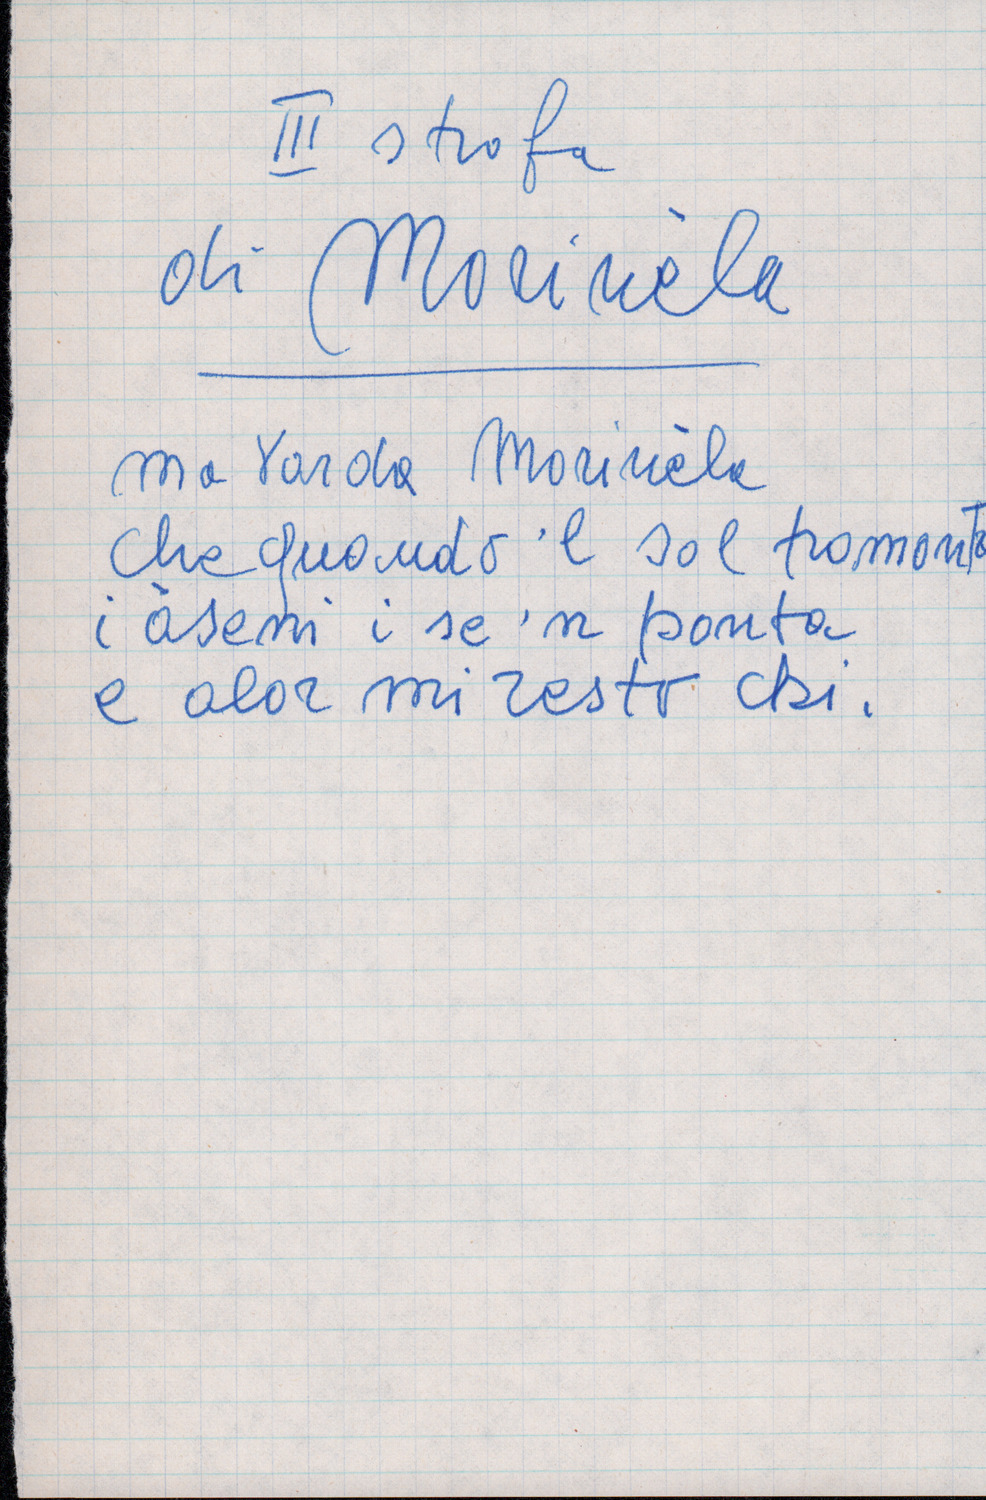 III strofa
di Morinèla
ma varda Morinèla
che quando 'l sol tramonta
i àseni i se 'n ponta
e alor mi resto chi.